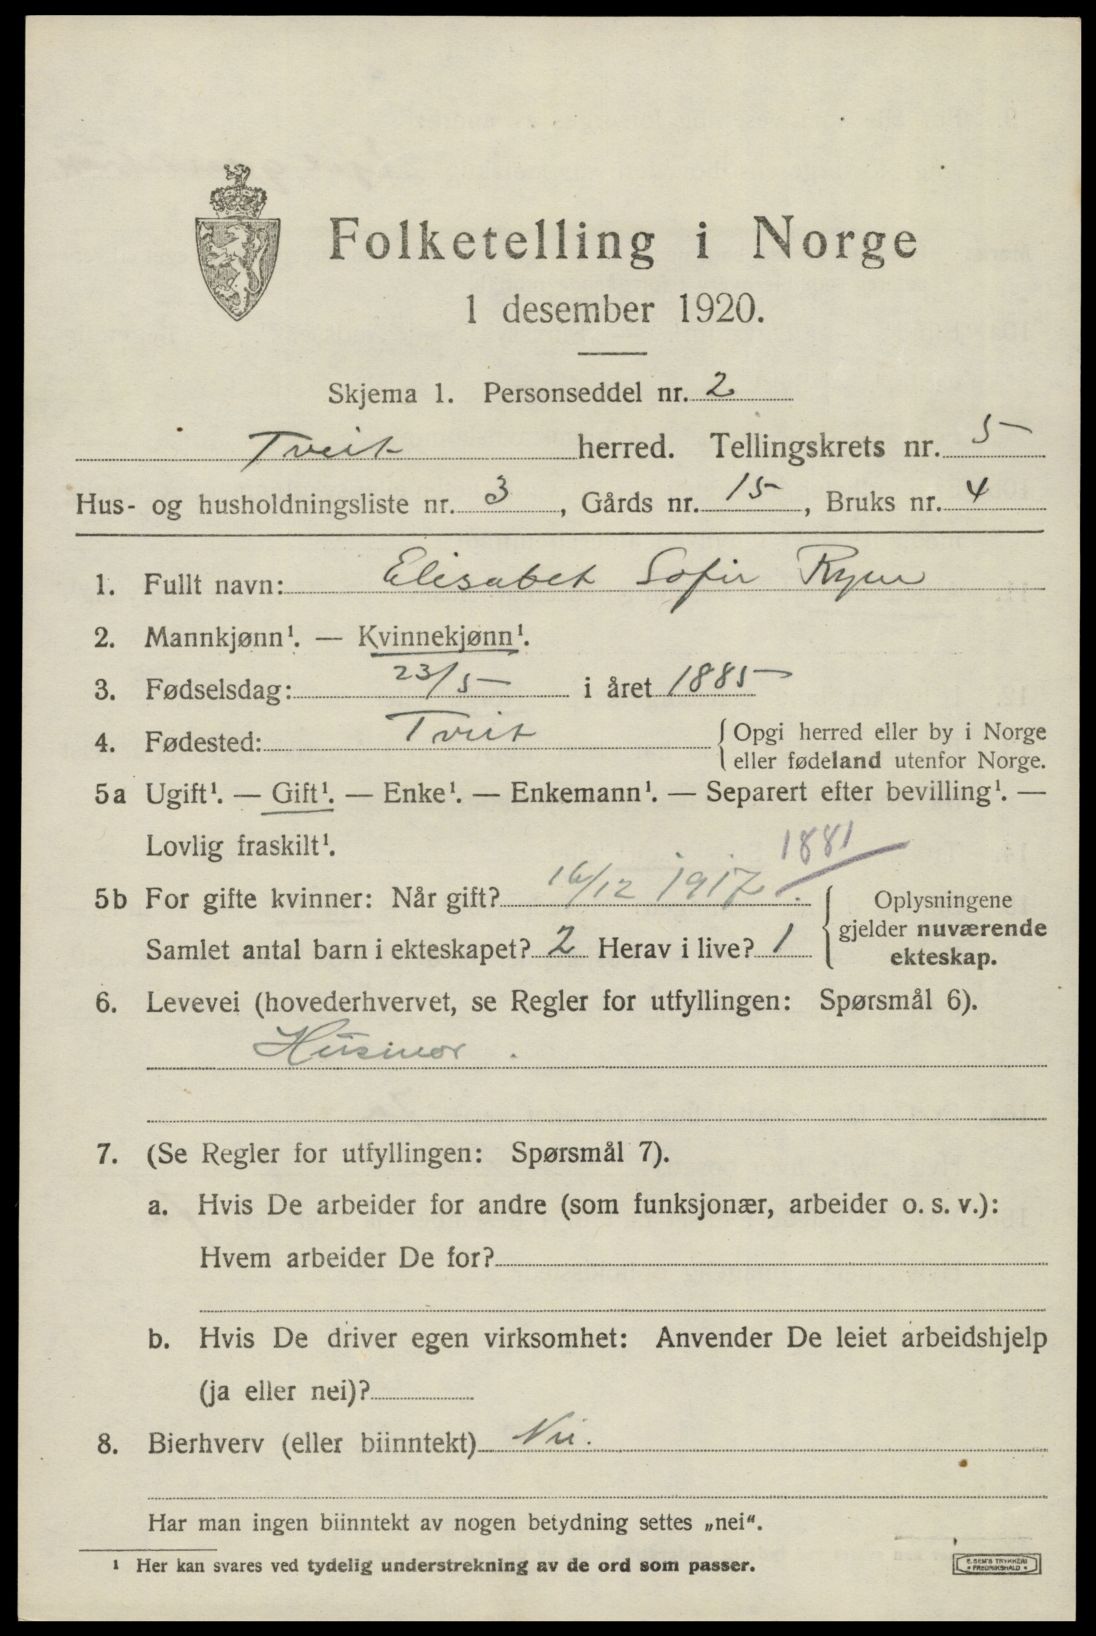 Folketelling i Norge
1 desember 1920.
Skjema 1. Personseddel nr. 2
Tveit herred. Tellingskrets nr. 5
Hus- og husholdningsliste nr. 3, Gårds nr. 15, Bruks nr. 4
1. Fullt navn: Elisabet Sofie Ryen
2. Mannkjønn¹. — Kvinnekjønn¹.
3. Fødselsdag: 23/5 i året 1885
4. Fødested: Tveit { Opgi herred eller by i Norge
eller fødeland utenfor Norge.
5a Ugift¹. — Gift¹. — Enke¹. — Enkemann¹. — Separert efter bevilling¹. —
Lovlig fraskilt¹.
1881
5b For gifte kvinner: Når gift? 16/12 1917. { Oplysningene
gjelder nuværende
Samlet antal barn i ekteskapet? 2 Herav i live? 1
ekteskap.
6. Levevei (hovederhvervet, se Regler for utfyllingen: Spørsmål 6).
Husmor.
7. (Se Regler for utfyllingen: Spørsmål 7).
a. Hvis De arbeider for andre (som funksjonær, arbeider o. s. v.):
Hvem arbeider De for?
b. Hvis De driver egen virksomhet: Anvender De leiet arbeidshjelp
(ja eller nei)?
8. Bierhverv (eller biinntekt) Nei.
Har man ingen biinntekt av nogen betydning settes „nei“.
¹ Her kan svares ved tydelig understrekning av de ord som passer.
E. SEM'S TRYKKERI
FREDRIKSHALD